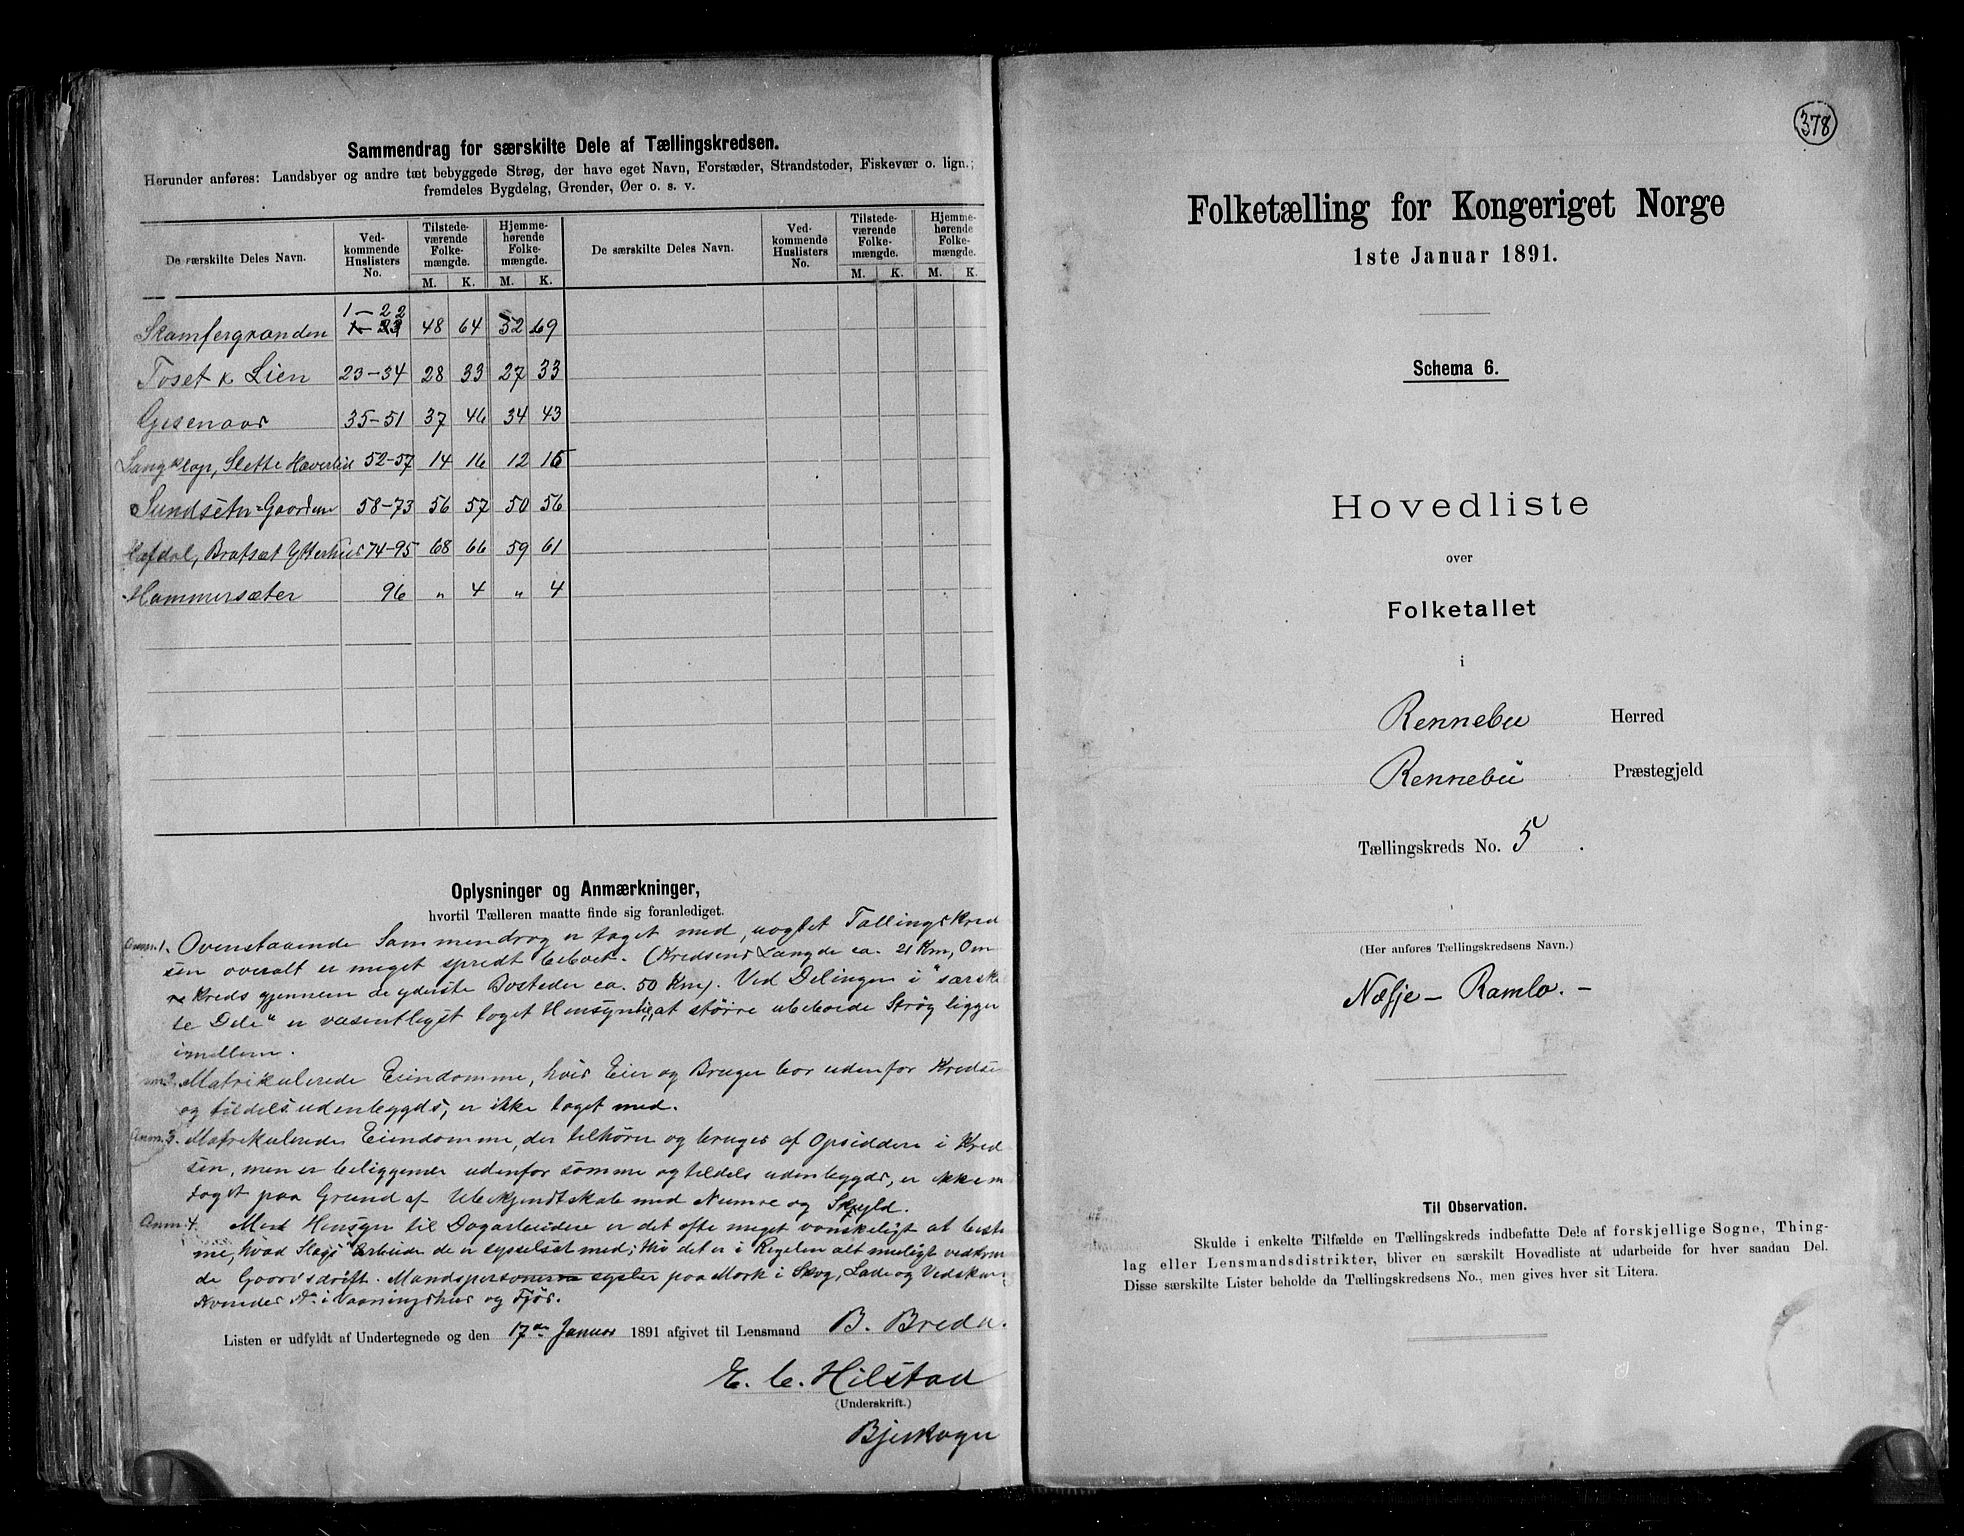 Sammendrag for særskilte Dele af Tællingskredsen.
Herunder anføres: Landsbyer og andre tæt bebyggede Strøg, der have eget Navn, Forstæder, Strandsteder, Fiskevær o. lign.;
fremdeles Bygdelag, Grender, Øer o. s. v.
De særskilte Deles Navn.
Ved-
kommende
Huslisters
No.
Tilstede-
værende
Folke-
mængde.
Hjemme-
hørende
Folke-
mængde.
M. K. M. K.
De særskilte Deles Navn.
Ved-
kommende
Huslisters
No.
Tilstede-
værende
Folke-
mængde.
Hjemme-
hørende
Folke-
mængde.
M. K. M. K.
1-22
Skamfergrænden 48 64 52 69
Toset & Lien 23-34 28 33 27 33
Gisenaas 35-51 37 46 34 43
Langklop, Slette 52-57 14 16 12 16
Sundsetn-Gaardene 58-73 56 57 50 56
Hæfdal, Bratset Ytterhus 74-95 68 66 59 61
Hammersæter 96 " 4 " 4
Oplysninger og Anmærkninger,
hvortil Tælleren maatte finde sig foranlediget.
Anm. 1. Ovenstaaende Sammendrag er taget med, uagtet Tællingskred-
sen overalt er meget spredt beboet. (Kredsens Længde ca. 21 Km, Om-
kreds gjennem de yderste Bosteder ca. 50 Km). Ved Delingen i "særskil-
te Dele" er væsentligst taget Hensyn til, at større ubeboede Strøg ligger
imellem.
Anm. 2. Matrikulerede Eiendomme, hvis Eier og Bruger bor udenfor Kredsen
og tildels udenbygds, er ikke taget med.
Anm. 3. Matrikulerede Eiendomme, der tilhører og bruges af Opsiddere i Kred-
sen, men er beliggende udenfor samme og tildels udenbygds, er ikke m
taget paa Grund af Ubekjendtskab med Numre og Skyld.
Anm. 4. Med Hensyn til Dagarbeidere er det ofte meget vanskeligt at bestem-
me, hvad Slags Arbeide de er sysselsat med; thi det er i Regelen alt muligt vedkommen-
de Gaardsdrift. Mandspersonerne sysler paa Mark i Skog, Lade og Vedskur,
Kvinder i Vaaningshus og Fjøs.
Listen er udfyldt af Undertegnede og den 17de Januar 1891 afgivet til Lensmand B. Breda.
E. C. Hilstad
(Underskrift.)
Bjerkager
378
Folketælling for Kongeriget Norge
1ste Januar 1891.
Schema 6.
Hovedliste
over
Folketallet
i
Rennebu Herred
Rennebu Præstegjeld
Tællingskreds No. 5.
(Her anføres Tællingskredsens Navn.)
Næfje - Ramlo. -
Til Observation.
Skulde i enkelte Tilfælde en Tællingskreds indbefatte Dele af forskjellige Sogne, Thing-
lag eller Lensmandsdistrikter, bliver en særskilt Hovedliste at udarbeide for hver saadan Del.
Disse særskilte Lister beholde da Tællingskredsens No., men gives hver sit Litera.